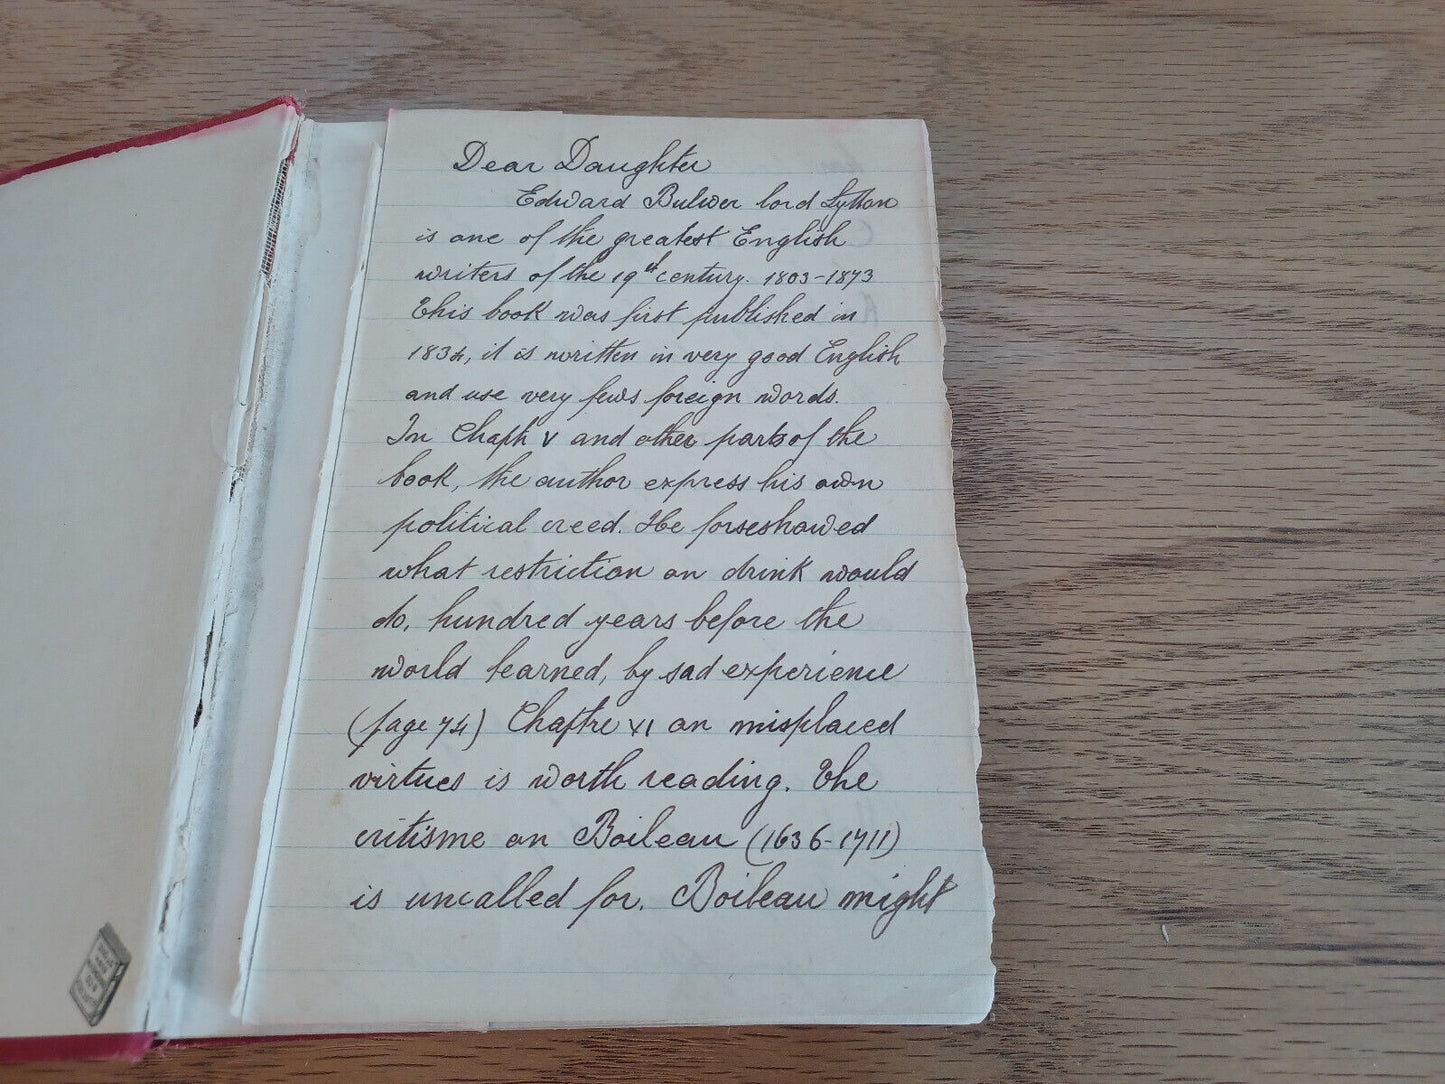 Dear Daughter
Edward Bulwer lord Lytton
is one of the greatest English
writers of the 19th century. 1803-1873
This book was first published in
1834, it is written in very good English
and use very fews foreign words.
In Chapt V and other parts of the
book, the author express his own
political creed. He forseshowed
what restriction on drink would
do, hundred years before the
world learned, by sad experience
(page 74) Chaptre XI on misplaced
virtues is worth reading. The
critisme on Boileau (1636-1711)
is uncalled for. Boileau might